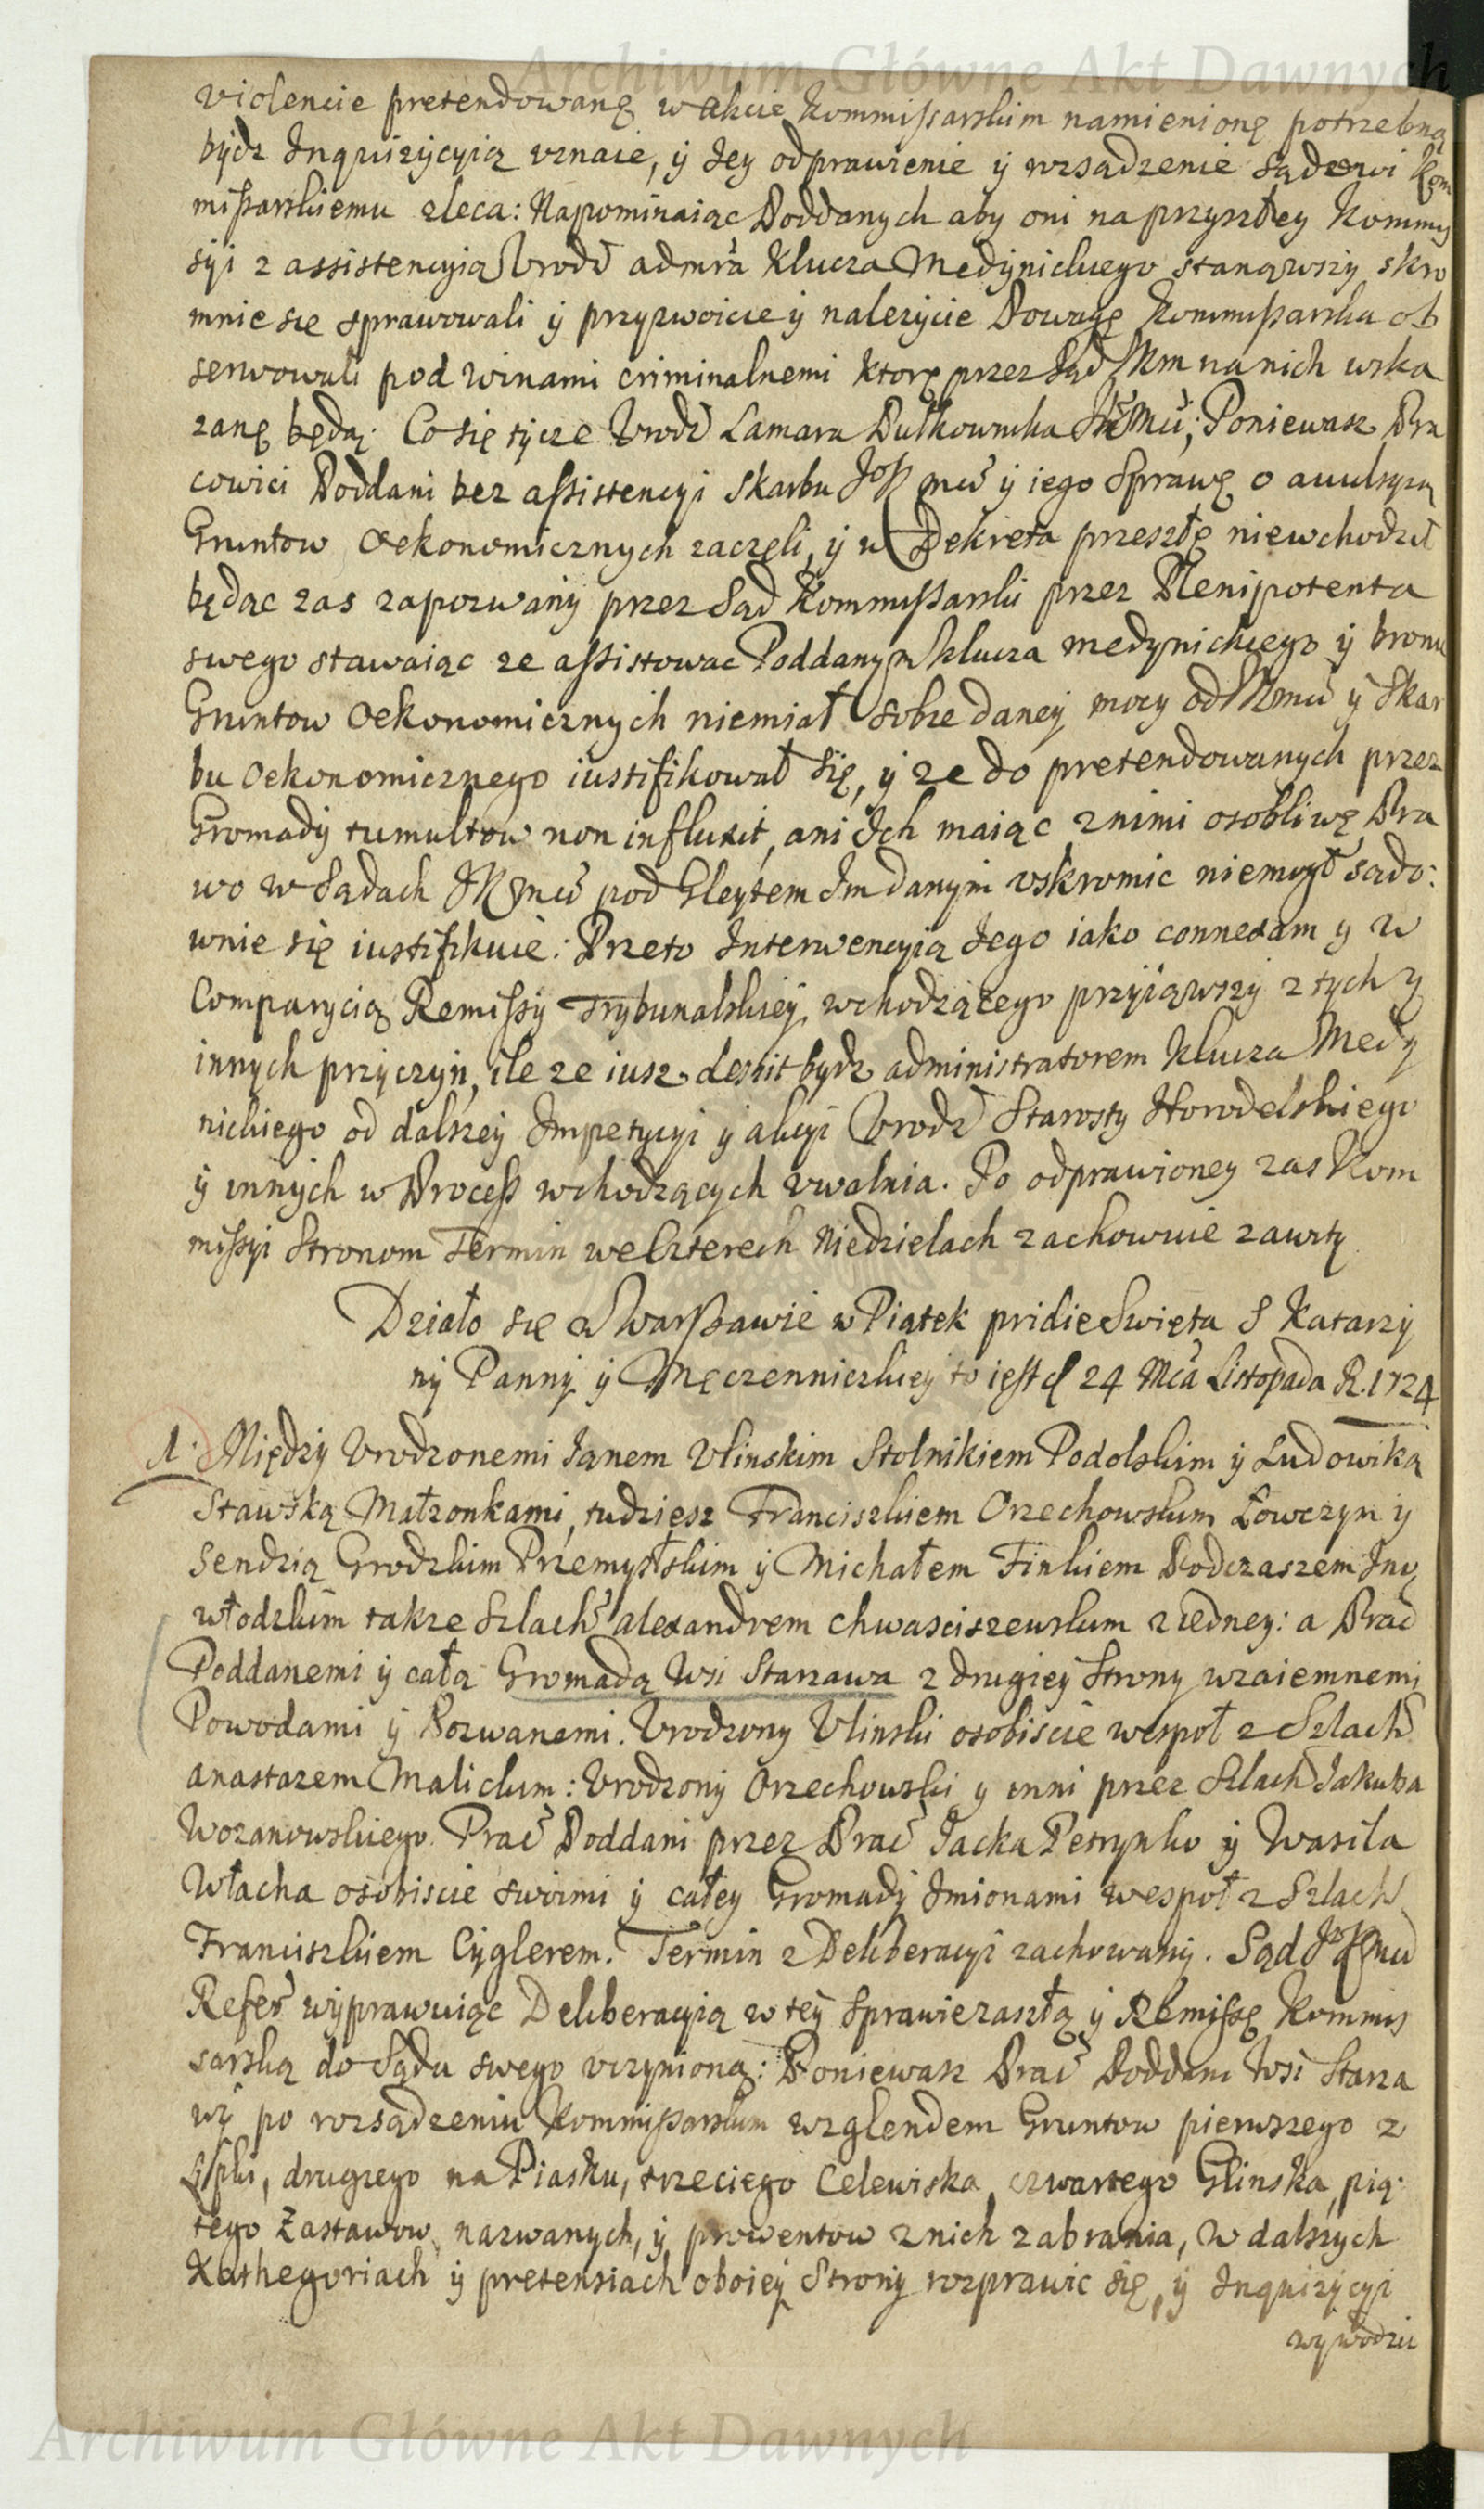 Archiwum Główne Akt Dawnych
violencie pretendowanę w akcie Kommissarskim namienionę potrzebną
bydź Inquizycyią uznaie, ÿ Jey odprawienie ÿ rozsądzenie Sądowi Kom
missarskiemu zleca: Napominaiąc Poddanych aby oni na przyszłey Kommis
sÿi z assistencyią Urodź admrã Klucza Medÿnickiego stanąwszÿ skro
mnie się sprawowali ÿ przyzwoicie ÿ należycie Powagę Kommissarską ob
serwowali pod winami criminalnemi ktorę przez Sąd na nich wska
zanę będą. Co się tÿcze Urodź Lamara Pułkownika JKMci; Poniewasz Pra
cowici Poddani bez assistencyi Skarbu JoKmci ÿ iego Sprawę o awulsyią
Gruntow Oekonomicznych zaczęli, ÿ w Dekreta przeszłę niewchodził
będąc zas zapozwanÿ przez Sąd Kommissarski przez Plenipotenta
swego stawaiąc ze assistowac Poddanym klucza medynickiego ÿ bronic
Gruntow Oekonomicznych niemiał sobie daneÿ mocy od JKmci ÿ Skar
bu Oekonomicznego iustifikował się, ÿ ze do pretendowanych przez
Gromadÿ tumultow non influxit, ani Jch maiąc z nimi osobliwę Pra
wo w Sądach JKmci pod Gleytem Jm danÿm uskromic niemogł sądo:
wnie się iustifikuie: Przeto Interwencyią Jego iako connexam y w
Comparycią Remissÿ Trÿbunalskieÿ wchodzącego przÿiąwszÿ z tych y
innych przÿczÿn, ile ze iusz desiit bydz administratorem Klucza Medy
nickiego od dalszeÿ Impetycyi ÿ akcyi Urodź Starosty Horodelskiego
ÿ innych w Process wchodzących uwalnia. Po odprawioney zas Kom
missyi Stronom Termin we Czterech Niedzielach zachowuie zawity
Działo się w Warszawie w Piątek pridie Swięta S Katarzy
nÿ Pannÿ ÿ Męczenniczkieÿ to iest d 24 Mca Listopada R. 1724
1. Międzÿ Urodzonemi Janem Ulinskim Stolnikiem Podolskim ÿ Ludowiką
Stawską Małzonkami, tudziesz Franciszkiem Orzechowskim Łowczym ÿ
Sendzią Grodzkim Przemysłskim ÿ Michałem Finkiem Podczaszem Jno
włodzkim takze Szlach alexandrem chwasciszewskim z iedney: a Prac
Poddanemi ÿ całą Gromadą Wsi Starzawa z drugieÿ Strony wzaiemnemi
Powodami ÿ Pozwanemi. Urodzony Ulinski osobiscie wespoł z Szlach
anastazem Malickim: Urodzonÿ Orzechowski y inni przez Szlach Jakuba
Wozanowskiego. Prac Poddani przez Prac Jacka Petrynko ÿ Wasila
Włacha osobiscie swoimi ÿ całey Gromadÿ Jmionami wespoł z Szlach
Franciszkiem Cÿglerem. Termin z Deliberacyi zachowanÿ. Sąd JoKmci
Refer wyprawuiąc Deliberacyią w teÿ Sprawie zaszłą ÿ Remissę Kommis
sarską do Sądu swego uczynioną: Poniewasz Prac Poddani Wsi Starza
wÿ po rozsądzeniu Kommissarskim względem Gruntow pierwszego z
drugiego na Piasku, trzeciego Celewiska, czwartego Glinska, pią:
tego Zastawow nazwanych, ÿ prowentow z nich zabrania, w dalszych
Kathegoriach ÿ pretensiach oboieÿ Stronÿ rozprawic się, ÿ Inquizycyi
wywodzic
Archiwum Główne Akt Dawnych